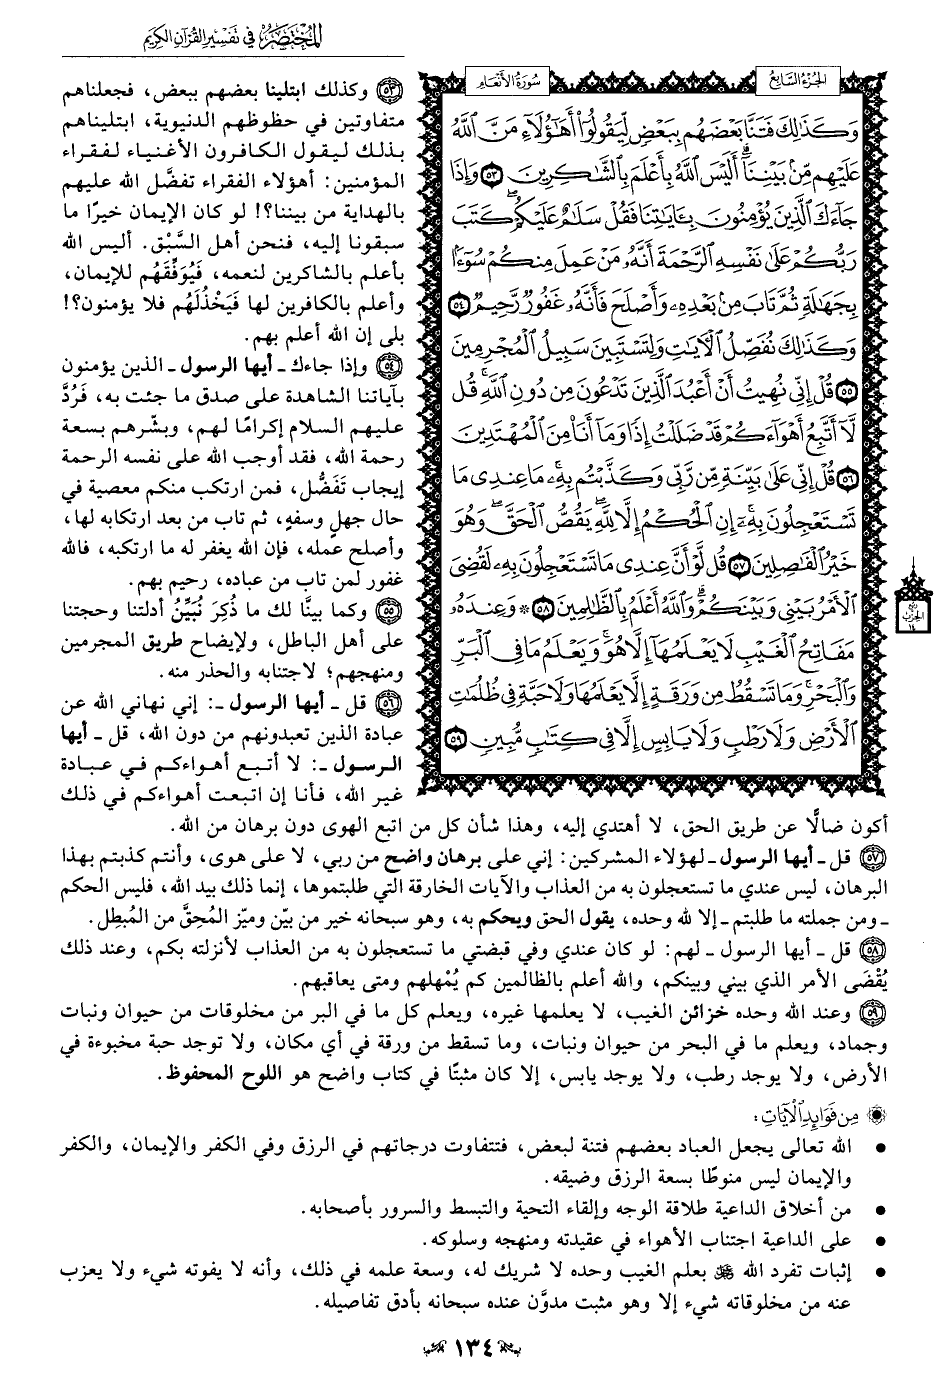 المختصر في تفسير القرآن الكريم
الجزء السابع
سورة الأنعام
وَكَذَٰلِكَ فَتَنَّا بَعْضَهُم بِبَعْضٍ لِّيَقُولُوٓا۟ أَهَٰٓؤُلَآءِ مَنَّ ٱللَّهُ
عَلَيْهِم مِّنۢ بَيْنِنَآ ۗ أَلَيْسَ ٱللَّهُ بِأَعْلَمَ بِٱلشَّٰكِرِينَ ٥٣ وَإِذَا
جَآءَكَ ٱلَّذِينَ يُؤْمِنُونَ بِـَٔايَٰتِنَا فَقُلْ سَلَٰمٌ عَلَيْكُمْ ۖ كَتَبَ
رَبُّكُمْ عَلَىٰ نَفْسِهِ ٱلرَّحْمَةَ ۖ أَنَّهُۥ مَنْ عَمِلَ مِنكُمْ سُوٓءًۢا
بِجَهَٰلَةٍ ثُمَّ تَابَ مِنۢ بَعْدِهِۦ وَأَصْلَحَ فَأَنَّهُۥ غَفُورٌ رَّحِيمٌ ٥٤
وَكَذَٰلِكَ نُفَصِّلُ ٱلْـَٔايَٰتِ وَلِتَسْتَبِينَ سَبِيلُ ٱلْمُجْرِمِينَ
٥٥ قُلْ إِنِّى نُهِيتُ أَنْ أَعْبُدَ ٱلَّذِينَ تَدْعُونَ مِن دُونِ ٱللَّهِ ۚ قُل
لَّآ أَتَّبِعُ أَهْوَآءَكُمْ ۙ قَدْ ضَلَلْتُ إِذًا وَمَآ أَنَا۠ مِنَ ٱلْمُهْتَدِينَ
٥٦ قُلْ إِنِّى عَلَىٰ بَيِّنَةٍ مِّن رَّبِّى وَكَذَّبْتُم بِهِۦ ۚ مَا عِندِى مَا
تَسْتَعْجِلُونَ بِهِۦٓ ۚ إِنِ ٱلْحُكْمُ إِلَّا لِلَّهِ ۖ يَقُصُّ ٱلْحَقَّ ۖ وَهُوَ
خَيْرُ ٱلْفَٰصِلِينَ ٥٧ قُل لَّوْ أَنَّ عِندِى مَا تَسْتَعْجِلُونَ بِهِۦ لَقُضِىَ
ٱلْأَمْرُ بَيْنِى وَبَيْنَكُمْ ۗ وَٱللَّهُ أَعْلَمُ بِٱلظَّٰلِمِينَ ٥٨ ۞ وَعِندَهُۥ
مَفَاتِحُ ٱلْغَيْبِ لَا يَعْلَمُهَآ إِلَّا هُوَ ۚ وَيَعْلَمُ مَا فِى ٱلْبَرِّ
وَٱلْبَحْرِ ۚ وَمَا تَسْقُطُ مِن وَرَقَةٍ إِلَّا يَعْلَمُهَا وَلَا حَبَّةٍ فِى ظُلُمَٰتِ
ٱلْأَرْضِ وَلَا رَطْبٍ وَلَا يَابِسٍ إِلَّا فِى كِتَٰبٍ مُّبِينٍ ٥٩
ربع
الحزب
١٤
٥٣ وكذلك ابتلينا بعضهم ببعض، فجعلناهم
متفاوتين في حظوظهم الدنيوية، ابتليناهم
بذلك ليقول الكافرون الأغنياء لفقراء
المؤمنين: أهؤلاء الفقراء تفضَّل الله عليهم
بالهداية من بيننا؟! لو كان الإيمان خيرًا ما
سبقونا إليه، فنحن أهل السَّبْق. أليس الله
بأعلم بالشاكرين لنعمه، فَيُوَفِّقَهُم للإيمان،
وأعلم بالكافرين لها فَيَخْذُلَهُم فلا يؤمنون؟!
بلى إن الله أعلم بهم.
٥٤ وإذا جاءك ـ أيها الرسول ـ الذين يؤمنون
بآياتنا الشاهدة على صدق ما جئت به، فَرُدَّ
عليهم السلام إكرامًا لهم، وبشّرهم بسعة
رحمة الله، فقد أوجب الله على نفسه الرحمة
إيجاب تَفَضُّل، فمن ارتكب منكم معصية في
حال جهلٍ وسفهٍ، ثم تاب من بعد ارتكابه لها،
وأصلح عمله، فإن الله يغفر له ما ارتكبه، فالله
غفور لمن تاب من عباده، رحيم بهم.
٥٥ وكما بينَّا لك ما ذُكِرَ نُبَيِّنُ أدلتنا وحجتنا
على أهل الباطل، ولإيضاح طريق المجرمين
ومنهجهم؛ لاجتنابه والحذر منه.
٥٦ قل ـ أيها الرسول ـ: إني نهاني الله عن
عبادة الذين تعبدونهم من دون الله، قل ـ أيها
الرسول ـ: لا أتبع أهواءكم في عبادة
غير الله، فأنا إن اتبعت أهواءكم في ذلك
أكون ضالًّا عن طريق الحق، لا أهتدي إليه، وهذا شأن كل من اتبع الهوى دون برهان من الله.
٥٧ قل ـ أيها الرسول ـ لهؤلاء المشركين: إني على برهان واضح من ربي، لا على هوى، وأنتم كذبتم بهذا
البرهان، ليس عندي ما تستعجلون به من العذاب والآيات الخارقة التي طلبتموها، إنما ذلك بيد الله، فليس الحكم
ـ ومن جملته ما طلبتم ـ إلا لله وحده، يقول الحق ويحكم به، وهو سبحانه خير من بيّن وميّز المُحِقَّ من المُبطِل.
٥٨ قل ـ أيها الرسول ـ لهم: لو كان عندي وفي قبضتي ما تستعجلون به من العذاب لأنزلته بكم، وعند ذلك
يُقْضَى الأمر الذي بيني وبينكم، والله أعلم بالظالمين كم يُمْهلهم ومتى يعاقبهم.
٥٩ وعند الله وحده خزائن الغيب، لا يعلمها غيره، ويعلم كل ما في البر من مخلوقات من حيوان ونبات
وجماد، ويعلم ما في البحر من حيوان ونبات، وما تسقط من ورقة في أي مكان، ولا توجد حبة مخبوءة في
الأرض، ولا يوجد رطب، ولا يوجد يابس، إلا كان مثبتًا في كتاب واضح هو اللوح المحفوظ.
من فوائد الآيات:
• الله تعالى يجعل العباد بعضهم فتنة لبعض، فتتفاوت درجاتهم في الرزق وفي الكفر والإيمان، والكفر
والإيمان ليس منوطًا بسعة الرزق وضيقه.
• من أخلاق الداعية طلاقة الوجه وإلقاء التحية والتبسط والسرور بأصحابه.
• على الداعية اجتناب الأهواء في عقيدته ومنهجه وسلوكه.
• إثبات تفرد الله ﷻ بعلم الغيب وحده لا شريك له، وسعة علمه في ذلك، وأنه لا يفوته شيء ولا يعزب
عنه من مخلوقاته شيء إلا وهو مثبت مدوَّن عنده سبحانه بأدق تفاصيله.
١٣٤